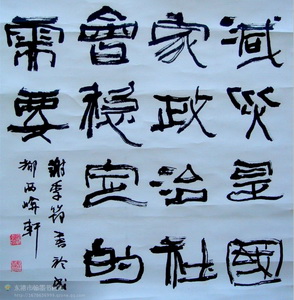 減災是國
家政治社
會穩定的
需要
謝季筠書於成
都西軒